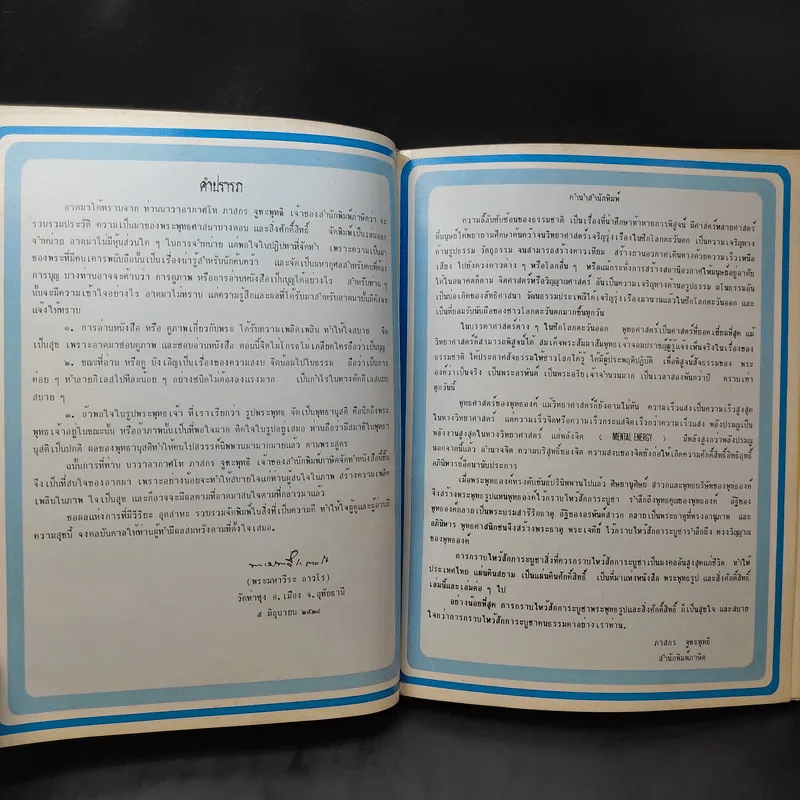 คำปรารภ
อาตมาได้ทราบจาก ท่านนาวาอากาศโท ภาสกร จูฑะพุทธิ เจ้าของสำนักพิมพ์ภาษิตว่า จะ
รวบรวมประวัติ ความเป็นมาของพระพุทธศาสนาบางตอน และสิ่งศักดิ์สิทธิ์ จัดพิมพ์เป็นเล่มออก
จำหน่าย อาตมาไม่มีหุ้นส่วนใด ๆ ในการจำหน่าย แต่พอใจในปฏิปทาที่จัดทำ เพราะความเป็นมา
ของพระที่มีคนเคารพนับถือนั้นเป็นเรื่องน่ารู้สำหรับนักค้นคว้า และจัดเป็นมหากุศลสำหรับคนที่ต้อง
การบุญ บางท่านอาจจะค้านว่า การดูภาพ หรือการอ่านหนังสือเป็นบุญได้อย่างไร สำหรับท่าน ๆ
นั้นจะมีความเข้าใจอย่างไร อาตมาไม่ทราบ แต่ความรู้สึกและผลที่ได้รับมาสำหรับอาตมานั้นมีดังจะ
แจ้งให้ทราบ
๑. การอ่านหนังสือ หรือ ดูภาพเกี่ยวกับพระ ได้รับความเพลิดเพลิน ทำให้ใจสบาย จิต
เป็นสุข เพราะอาตมาชอบดูภาพ และชอบอ่านหนังสือ ตอนนี้จิตไม่โกรธไม่เกลียดใครถือว่าเป็นบุญ
๒. ขณะที่อ่าน หรือดู บังเอิญเป็นเรื่องของความสงบ จิตน้อมไปในธรรม ถือว่าเป็นการ
ค่อย ๆ ทำลายกิเลสไปทีละน้อย ๆ อย่างชนิดไม่ต้องลงแรงมาก เป็นกำไรในทางตัดกิเลสแบบ
สบาย ๆ
๓. ถ้าพอใจในรูปพระพุทธเจ้า ที่เราเรียกว่า รูปพระพุทธ จัดเป็นพุทธานุสติ คือนึกถึงพระ
พุทธเจ้าอยู่ในขณะนั้น หรือถ้าภาพนั้นเป็นที่พอใจมาก ติดใจในรูปอยู่เสมอ ท่านถือว่ามีสมาธิในพุทธา
นุสติเป็นปกติ ผลของพุทธานุสติทำให้คนไปสวรรค์นิพพานมามากมายแล้ว ตามพระสูตร
ฉนั้นการที่ท่าน นาวาอากาศโท ภาสกร จูฑะพุทธิ เจ้าของสำนักพิมพ์ภาษิตจัดทำหนังสือนี้ขึ้น
จึงเป็นที่สบใจของอาตมา เพราะอย่างน้อยจะทำให้สบายใจแก่ท่านผู้สนใจในภาพ สร้างความเพลิด
เพลินในภาพ ใจเป็นสุข และก็อาจจะมีผลตามที่อาตมาสนใจตามที่กล่าวมาแล้ว
ขอผลแห่งการที่มีวิริยะ อุตสาหะ รวบรวมจัดพิมพ์ในสิ่งที่เป็นความดี ทำให้ผู้ดูและผู้อ่านมี
ความสุขนี้ จงดลบันดาลให้ท่านผู้ทำมีผลสมหวังตามที่ตั้งใจเสมอ.
(พระมหาวีระ ถาวโร)
วัดท่าซุง อ.เมือง จ.อุทัยธานี
๕ มิถุนายน ๒๕๒๔
คำนำสำนักพิมพ์
ความลี้ลับซับซ้อนของธรรมชาติ เป็นเรื่องที่น่าศึกษาท้าทายการพิสูจน์ มีศาสตร์หลายศาสตร์
ที่มนุษย์ได้พยายามศึกษาค้นคว้าจนวิทยาศาสตร์เจริญรุ่งเรืองในซีกโลกตะวันตก เป็นความเจริญทาง
ด้านรูปธรรม วัตถุธรรม จนสามารถสร้างดาวเทียม สร้างยานอวกาศเดินทางด้วยความเร็วเหนือ
เสียง ไปยังดวงดาวต่าง ๆ หรือโลกอื่น ๆ หรือแม้กระทั่งการสร้างสถานีอวกาศให้มนุษย์อยู่อาศัย
ได้ในอนาคตก็ตาม จิตศาสตร์หรือวิญญาณศาสตร์ อันเป็นความเจริญทางด้านอรูปธรรม มโนธรรมอัน
เป็นบ่อเกิดของลัทธิศาสนา วัฒนธรรมประเพณีได้เจริญรุ่งเรืองมานานแล้วในซีกโลกตะวันออก และ
เป็นที่ยอมรับนับถือของชาวโลกตะวันตกมากขึ้นทุกวัน
ในบรรดาศาสตร์ต่าง ๆ ในซีกโลกตะวันออก พุทธศาสตร์เป็นศาสตร์ที่ยอดเยี่ยมที่สุด แม้
วิทยาศาสตร์ก็สามารถพิสูจน์ได้ สมเด็จพระสัมมาสัมพุทธเจ้าจอมปราชญ์ผู้รู้แจ้งเห็นจริงในเรื่องของ
ธรรมชาติ ได้ประกาศสัจธรรมให้ชาวโลกได้รู้ ได้มีผู้ประพฤติปฏิบัติ เพื่อพิสูจน์สัจธรรมของพระ
องค์ว่าเป็นจริง เป็นพระอรหันต์ เป็นพระอริยเจ้าจำนวนมาก เป็นเวลาสองพันกว่าปี ตราบเท่า
ทุกวันนี้
พุทธศาสตร์ของพระพุทธองค์ แม้วิทยาศาสตร์ก็ยังตามไม่ทัน ความเร็วแสงเป็นความเร็วสูงสุด
ในทางวิทยาศาสตร์ แต่ความเร็วจิตหรือความเร็วกระแสจิตเร็วกว่าความเร็วแสง พลังปรมณูเป็น
พลังงานสูงสุดในทางวิทยาศาสตร์ แต่พลังจิต ( MENTAL ENERGY ) มีพลังสูงกว่าพลังปรมณู
นอกจากนี้แล้ว อำนาจจิต ความบริสุทธิ์ของจิต ความสงบของจิตยังก่อให้เกิดความศักดิ์สิทธิ์อิทธิฤทธิ์
อภินิหารอีกนานัปประการ
เมื่อพระพุทธองค์ทรงดับขันธ์ปรินิพพานไปแล้ว ศิษยานุศิษย์ สาวกและพุทธบริษัทของพุทธองค์
จึงสร้างพระพุทธรูปแทนพุทธองค์ไว้กราบไหว้สักการะบูชา รำลึกถึงพุทธคุณของพุทธองค์ อัฐิของ
พุทธองค์กลายเป็นพระบรมสารีริกธาตุ อัฐิของอรหันต์สาวก กลายเป็นพระธาตุที่ทรงอานุภาพ และ
อภินิหาร พุทธศาสนิกชนจึงสร้างพระธาตุ พระเจดีย์ ไว้กราบไหว้สักการะบูชารำลึกถึง ดวงวิญญาณ
ของพุทธองค์
การกราบไหว้สักการะบูชาสิ่งที่ควรกราบไหว้สักการะบูชาเป็นมงคลอันสูงสุดแก่ชีวิต ทำให้
ประเทศไทย แผ่นดินสยาม เป็นแผ่นดินศักดิ์สิทธิ์ เป็นที่มาแห่งหนังสือ พระพุทธรูป และสิ่งศักดิ์สิทธิ์
เล่มนี้และเล่มต่อ ๆ ไป
อย่างน้อยที่สุด การกราบไหว้สักการะบูชาพระพุทธรูปและสิ่งศักดิ์สิทธิ์ ก็เป็นสุขใจ และสบาย
ใจกว่าการกราบไหว้สักการะบูชาคนธรรมดาอย่างเราท่าน.
ภาสกร จูฑะพุทธิ
สำนักพิมพ์ภาษิต